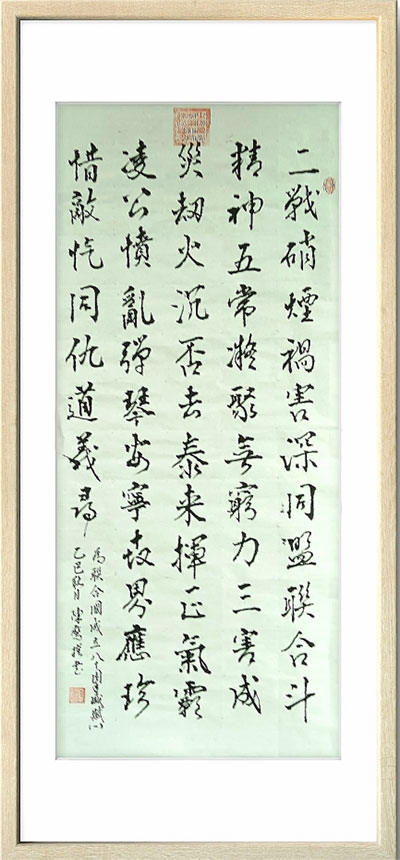 二戰硝煙禍害深同盟聯合斗
精神五常凝聚無窮力三害成
災劫火沉否去泰来揮正氣霸
凌公憤亂彈琴安寧世界應珍
惜敵忾同仇道義尋
為聯合國成立八十周年感賦
乙巳秋月陳撰書